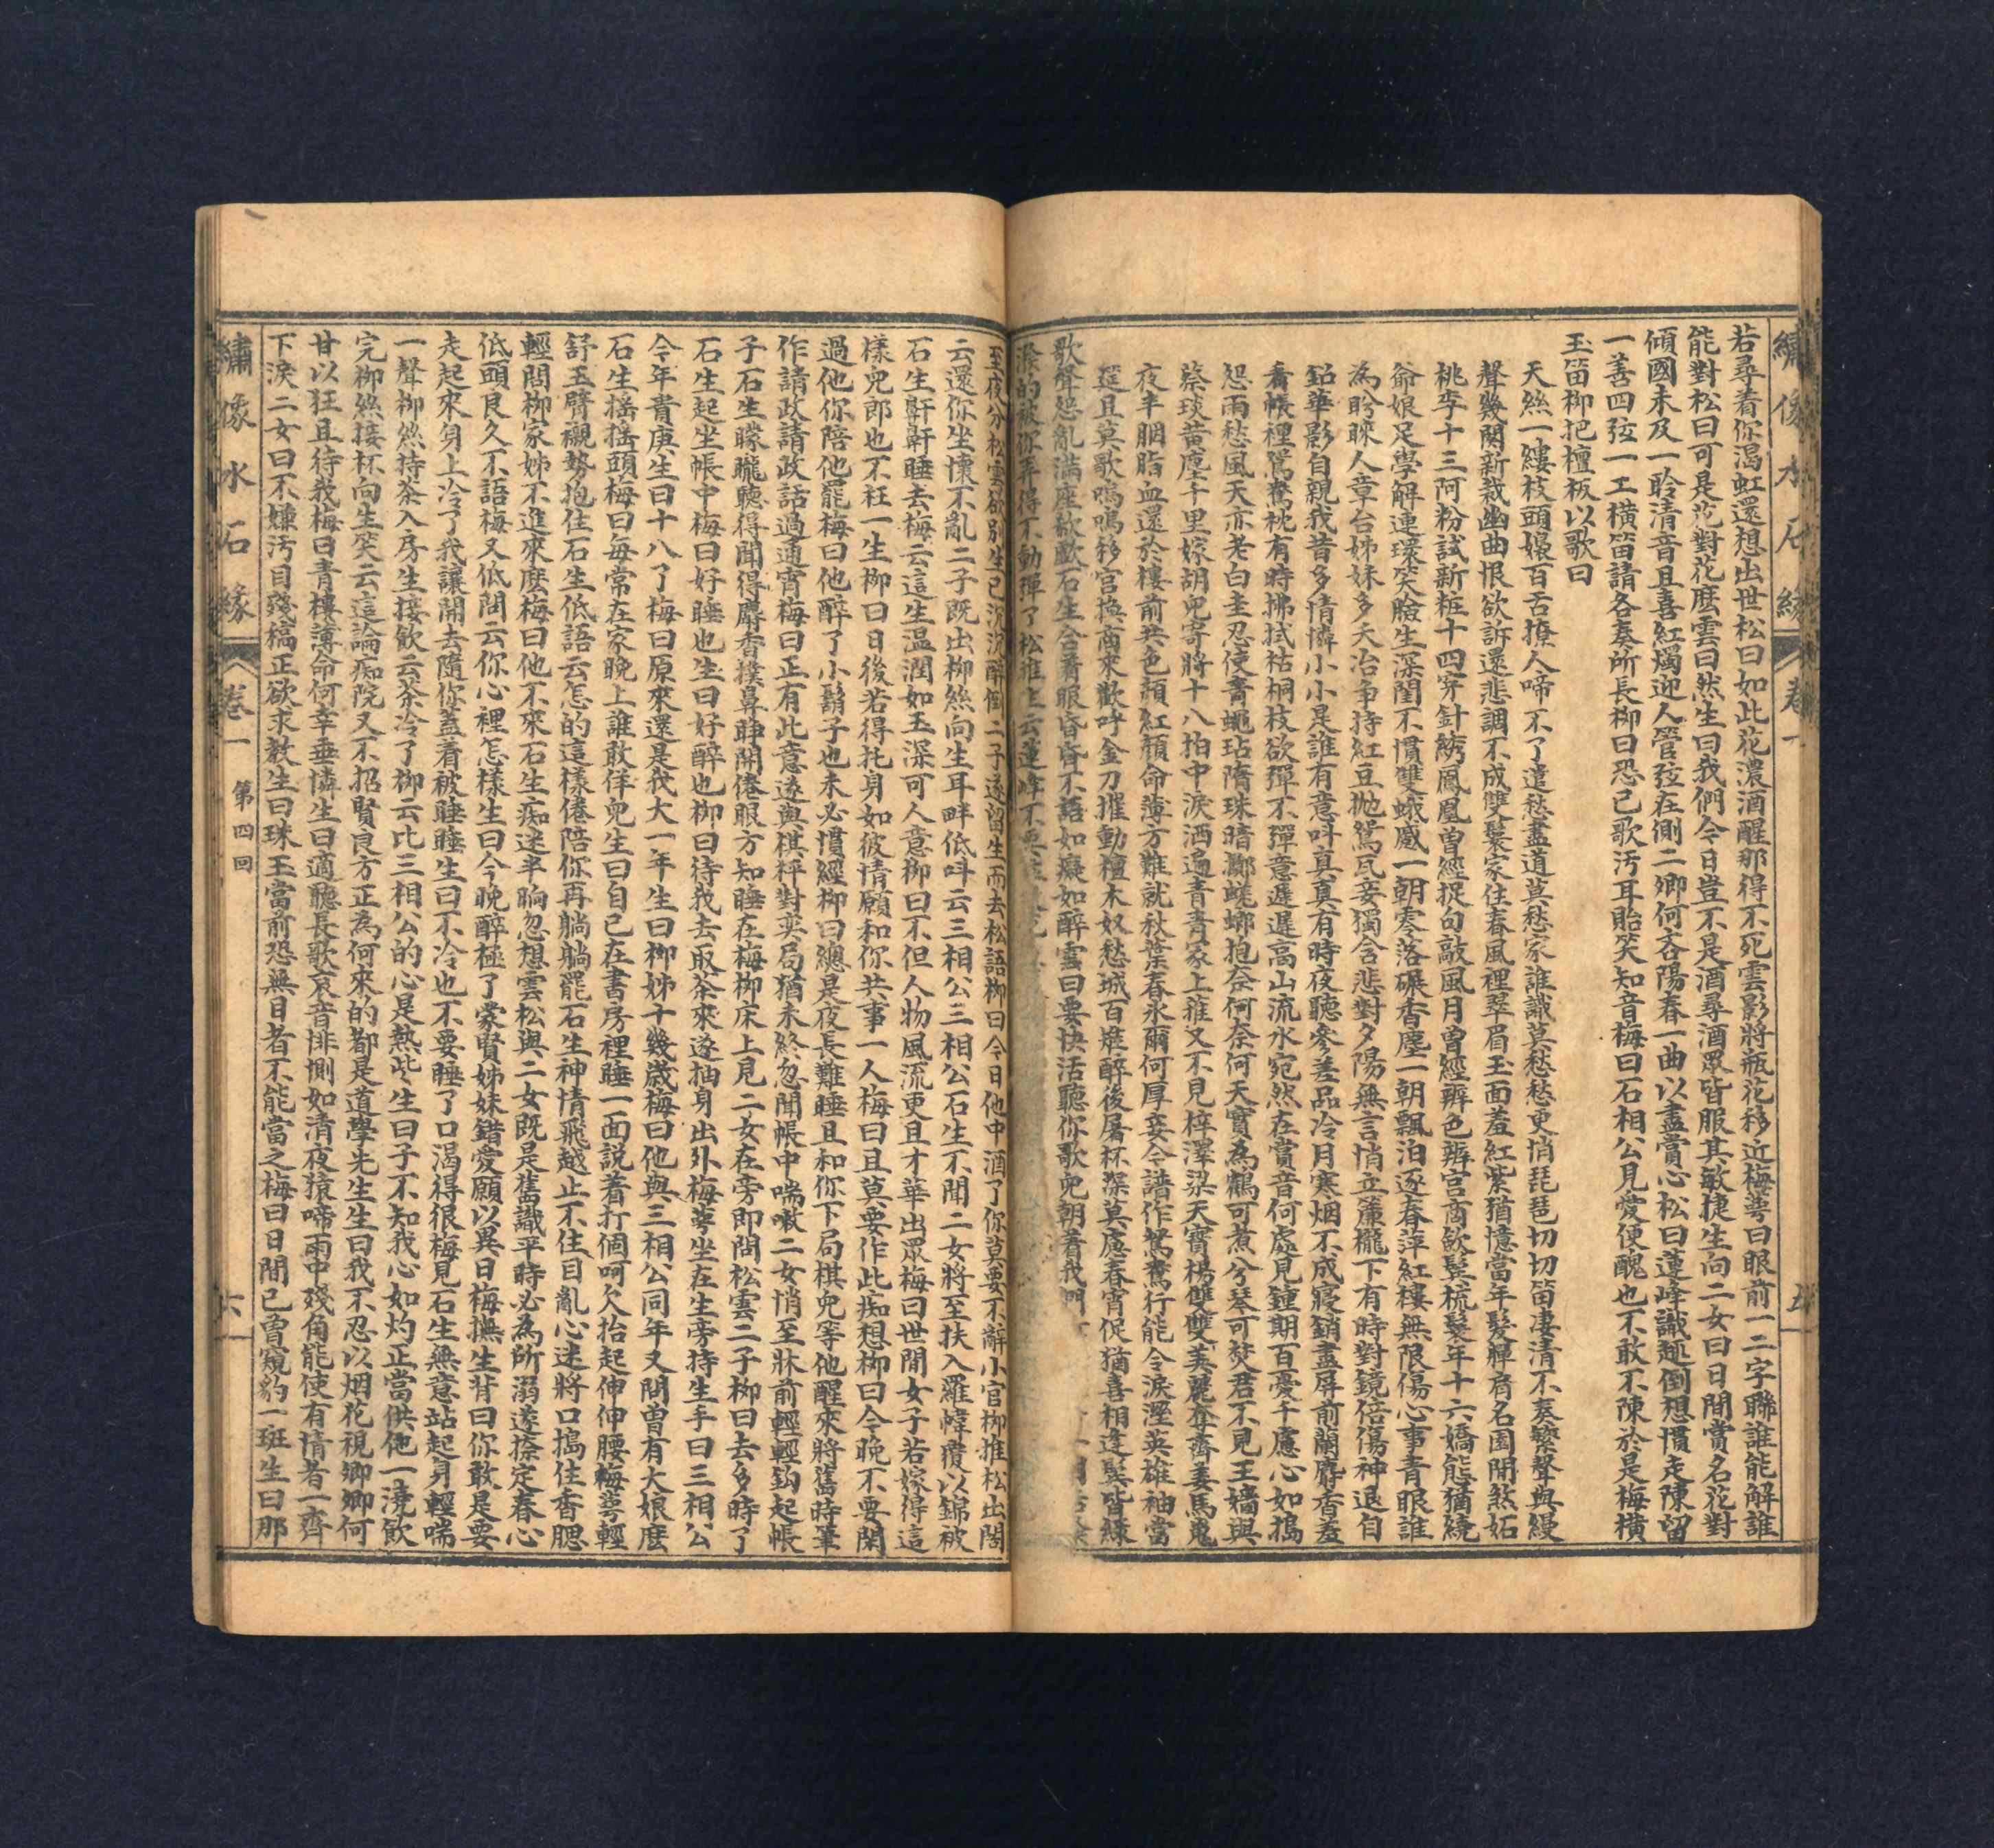 繡像水石緣 卷一
若尋着你渴虹還想出世松曰如此花濃酒醒那得不死雲影將瓶花移近梅萼曰眼前一二字聯誰能解誰
能對松曰可是花對花麽雲曰然生曰我們今日豈不是酒尋酒眾皆服其敏捷生向二女曰日間賞名花對
傾國未及一聆清音且喜紅燭迎人管弦在側二卿何吝陽春一曲以盡賞心松曰蓮峰識趣倒想慣走陳留
一善四弦一工橫笛請各奏所長柳曰恐已歌汚耳貽笑知音梅曰石相公見愛便醜也不敢不陳於是梅橫
玉笛柳把檀板以歌曰
天絲一縷枝頭嫋百舌撩人啼不了遣愁盡道莫愁家誰識莫愁愁更悄琵琶切切笛凄清不奏繁聲與縵
聲幾闋新裁幽曲恨欲訴還悲調不成雙鬟家住春風裡翠眉玉面羞紅紫猶憶當年髮嚲肩名園閒煞妬
桃李十三阿粉試新粧十四穿針綉鳳凰曾經捉句敲風月曾經辨色辨宮商歛髮梳鬟年十六嬌態猶繞
爺娘足學解連環笑臉生深閨不慣雙蛾蹙一朝零落碾香塵一朝飄泊逐春萍紅樓無限傷心事青眼誰
為盼睞人章台姊妹多夭冶爭持紅豆拋鴛瓦妾獨含悲對夕陽無言悄立簾櫳下有時對鏡倍傷神退自
鉛華影自親我昔多情憐小小是誰有意呌真真有時夜聽參差品冷月寒烟不成寢銷盡屏前蘭麝香羞
看帳裡鴛鴦枕有時拂拭枯桐枝欲彈不彈意遲遲高山流水宛然在賞音何處見鍾期百憂千慮心如搗
怨雨愁風天亦老白圭忍使青蠅玷隋珠暗擲蜣螂抱奈何奈何天實為鶴可煮兮琴可焚君不見王嬙與
蔡琰黃塵千里嫁胡兒寄將十八拍中淚洒遍青青冢上蓷又不見梓澤梁天寶楊雙雙美麗奪齊姜馬嵬
夜半胭脂血還於樓前共色頳紅顏命薄方難就秋葉春永爾何厚妾今譜作鴛鴦行能令淚溼英雄袖當
筵且莫歌嗚嗚移宮換商來歡呼金刀摧動檀木奴愁城百雉醉後屠杯深莫慮春宵促猶喜相逢髮皆綠
歌聲怨亂滿座欷歔石生合着眼昏昏不語如癡如醉雲曰要快活聽你歌兒朝着我門
的被你弄得不動彈了松推生云蓮峰不要
至夜分松雲欲别生已沉沉醉倒二子遂留生而去松語柳曰今日他中酒了你莫要不辭小官柳推松出閤
云還你坐懷不亂二子既出柳絲向生耳畔低呌云三相公三相公石生不聞二女將至扶入羅幃覆以錦被
石生鼾鼾睡去梅云這生温潤如玉深可人意柳曰不但人物風流更且才華出眾梅曰世間女子若嫁得這
樣兒郎也不枉一生柳曰日後若得托身如彼情願和你共事一人梅曰且莫要作此痴想柳曰今晚不要閑
過他你陪他罷梅曰他醉了小鬍子也未必慣經柳曰總是夜長難睡且和你下局棋兒等他醒來將舊時筆
作請政請政話過通宵梅曰正有此意遂與棋枰對奕局猶未終忽聞帳中喘嗽二女悄至牀前輕輕鈎起帳
子石生矇矓聽得聞得麝香撲鼻睁開倦眼方知睡在梅柳床上見二女在旁即問松雲二子柳曰去多時了
石生起坐帳中梅曰好睡也生曰好醉也柳曰待我去取茶來遂抽身出外梅萼坐在生旁持生手曰三相公
今年貴庚生曰十八了梅曰原來還是我大一年生曰柳姊十幾歲梅曰他與三相公同年又問曾有大娘麽
石生摇摇頭梅曰每常在家晚上誰敢佯兒生曰自己在書房裡睡一面説着打個呵欠抬起伸伸腰梅萼輕
舒玉臂襯勢抱住石生低語云怎的這樣倦陪你再躺躺罷石生神情飛越止不住目亂心迷將口搗住香腮
輕問柳家姊不進來麽梅曰他不來石生痴迷半晌忽想雲松與二女既是舊識平時必為所溺遂捺定春心
低頭良久不語梅又低問云你心裡怎樣生曰今晚醉極了蒙賢姊妹錯愛願以異日梅撫生背曰你敢是要
走起來身上冷了我讓開去隨你盖着被睡睡生曰不冷也不要睡了口渴得很梅見石生無意站起身輕喘
一聲柳絲持茶入房生接飲云茶冷了柳云比三相公的心是熱些生曰子不知我心如灼正當供他一澆飲
完柳絲接杯向生笑云這論痴院又不招賢良方正為何來的都是道學先生生曰我不忍以烟花視卿卿何
甘以狂且待我梅曰青樓薄命何幸垂憐生曰適聽長歌哀音悱惻如清夜猿啼雨中殘角能使有情者一齊
下淚二女曰不嫌汚目殘槁正欲求教生曰珠玉當前恐無目者不能當之梅曰日間已曾窺豹一斑生曰那
繡像水石緣 卷一 第四回 六